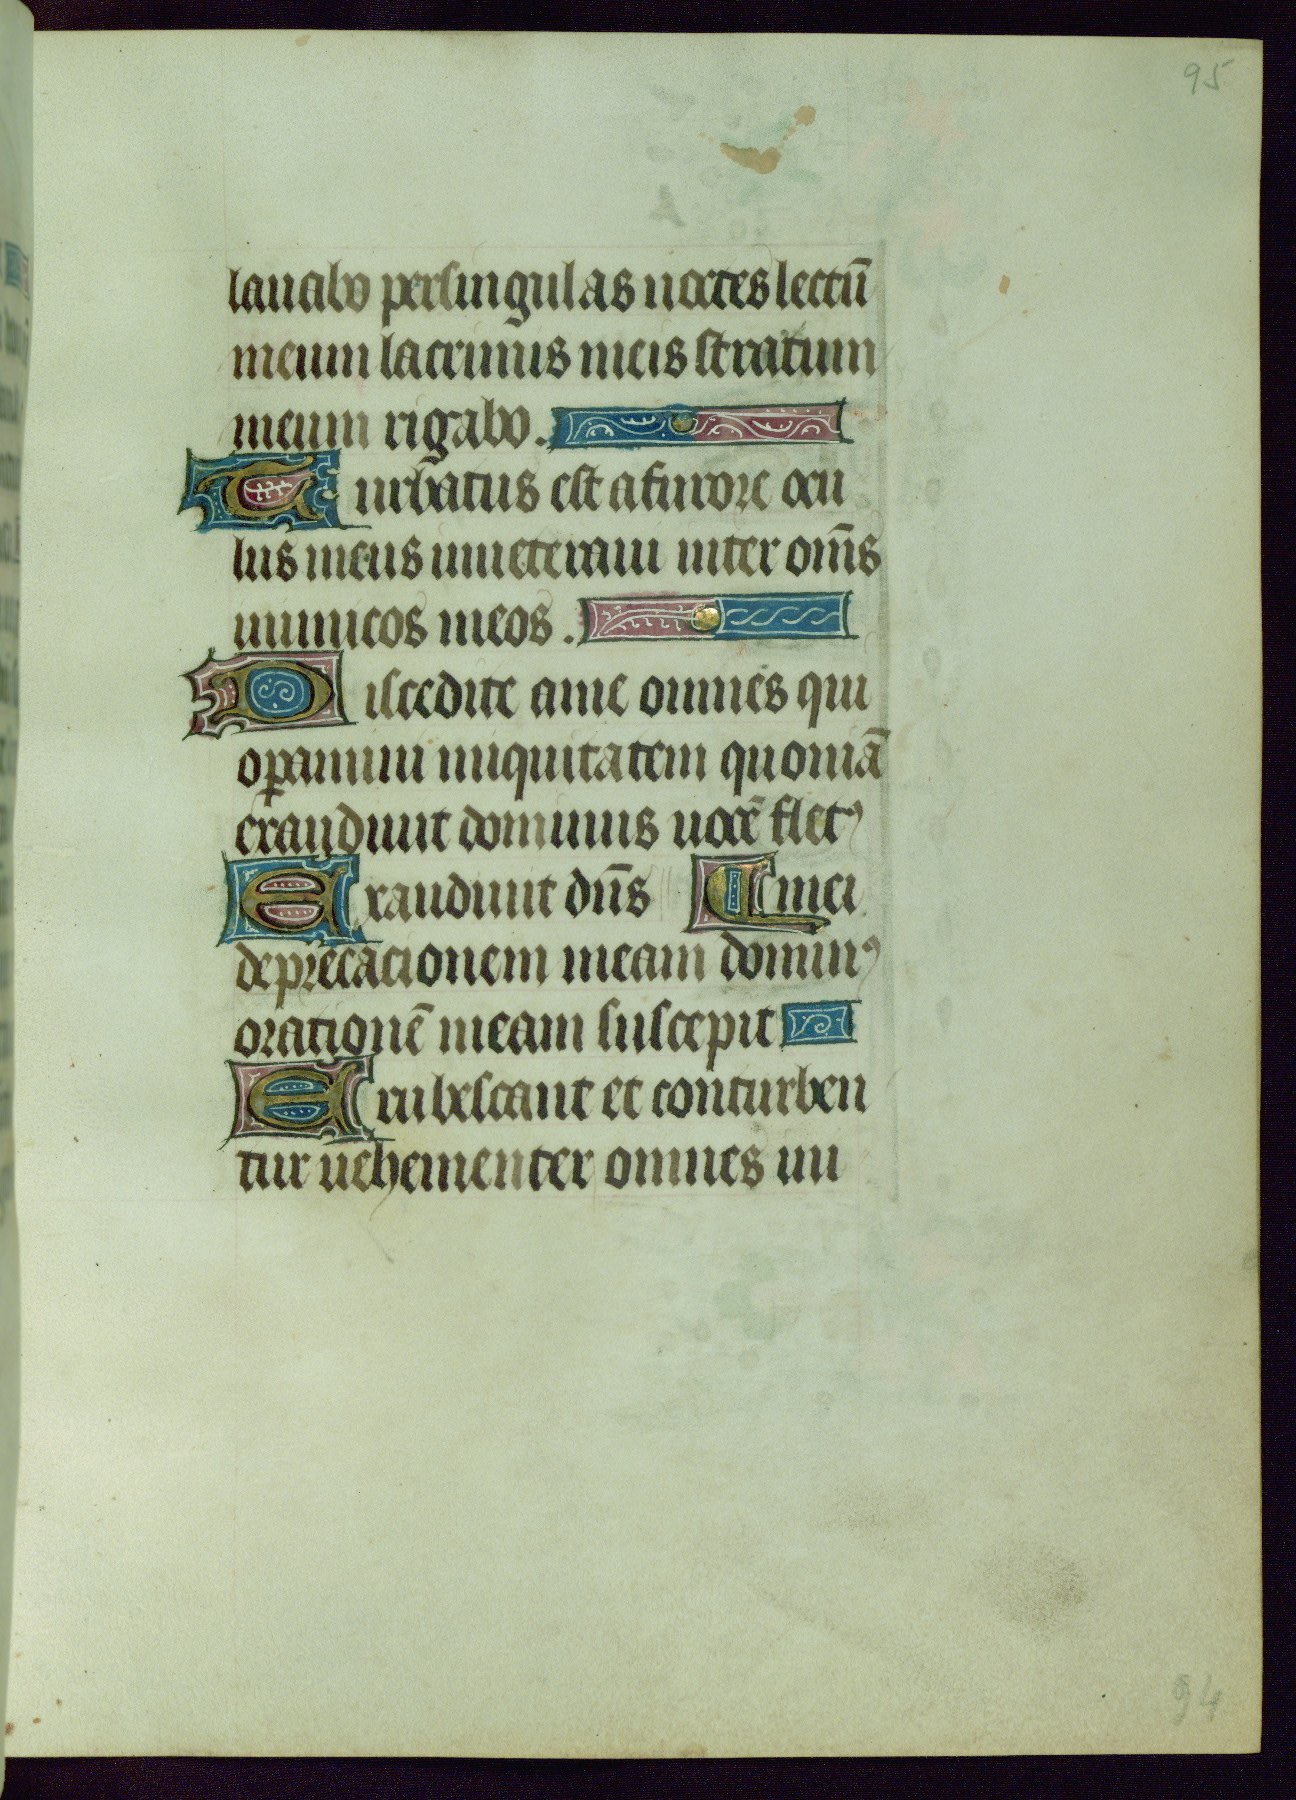 95
lauabo per singulas noctes lectū
meum lacrimis meis stratum
meum rigabo.
Turbatus est a furore ocu
lus meus inueteraui inter om̄s
inimicos meos.
Discedite a me omnes qui
operamini iniquitatem quoniā
exaudiuit dominus uocē flet⁹
Exaudiuit dn̄s mei
deprecacionem meam domin⁹
orationē meam suscepit
Erubescant et conturben
tur uehementer omnes ini
94